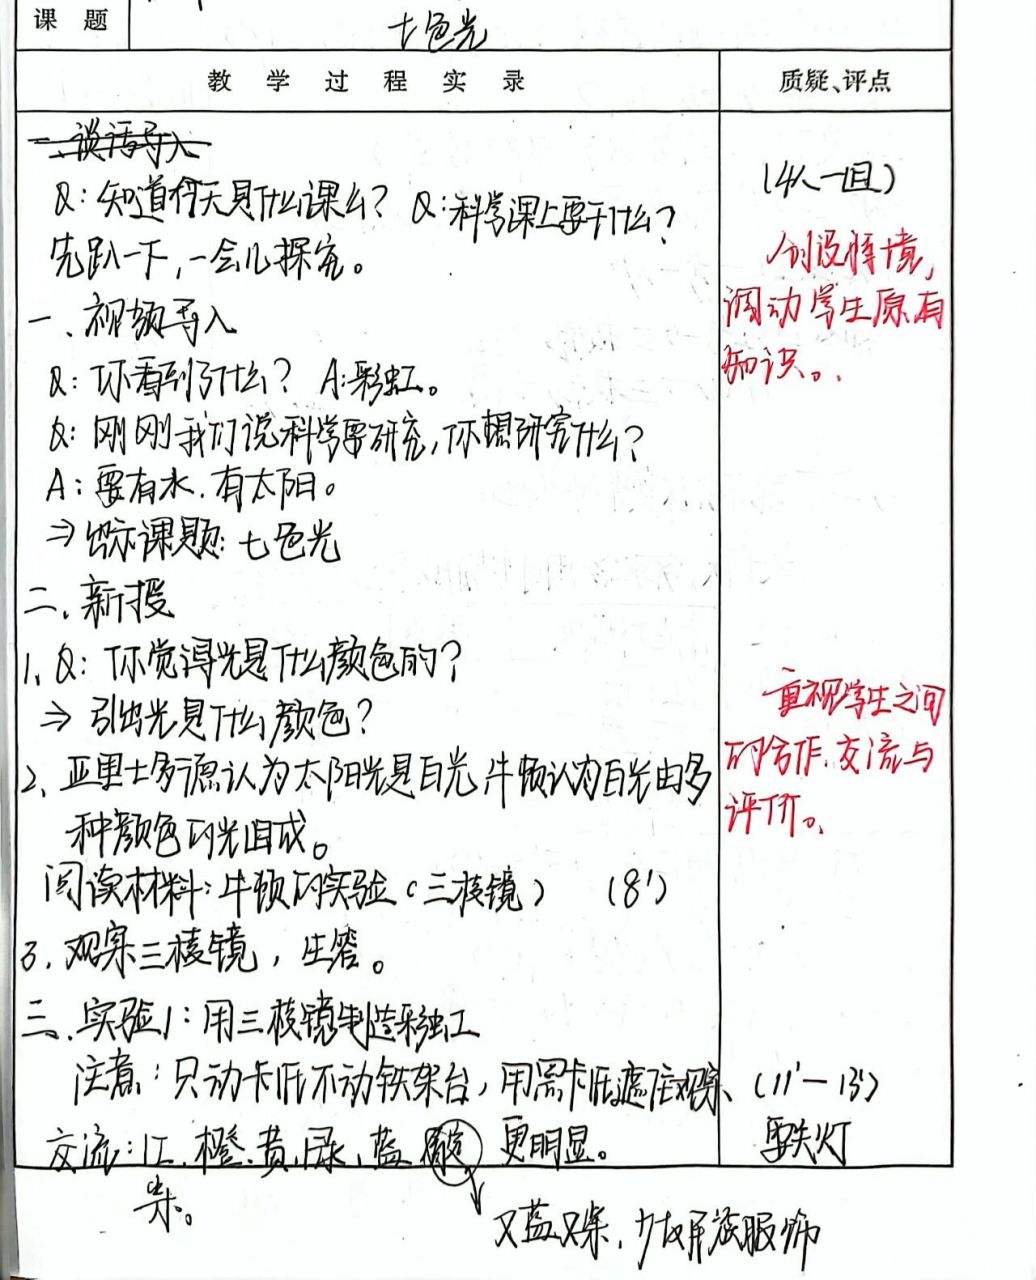 课 题
七色光
教 学 过 程 实 录
质疑、评点
一、谈话导入
Q: 知道今天是什么课么? Q: 科学课上要干什么?
先趴一下,一会儿探究。
(4人一组)
创设情境,
调动学生原有
知识。
一、视频导入
Q: 你看到了什么? A: 彩虹。
Q: 刚刚我们说科学要研究,你想研究什么?
A: 要有水、有太阳。
⇒ 出示课题: 七色光
二、新授
1、Q: 你觉得光是什么颜色的?
⇒ 引出光是什么颜色?
2、亚里士多德认为太阳光是白光,牛顿认为白光由多
种颜色的光组成。
阅读材料: 牛顿的实验(三棱镜) (8')
重视学生之间
的合作、交流与
评价。
3、观察三棱镜,生答。
三、实验1: 用三棱镜制造彩虹
注意: 只动卡纸不动铁架台,用黑卡纸遮住观察、
(11'-13')
交流: 红、橙、黄、绿、蓝、靛 更明显。
要关灯
紫。
又蓝又紫,少数民族服饰